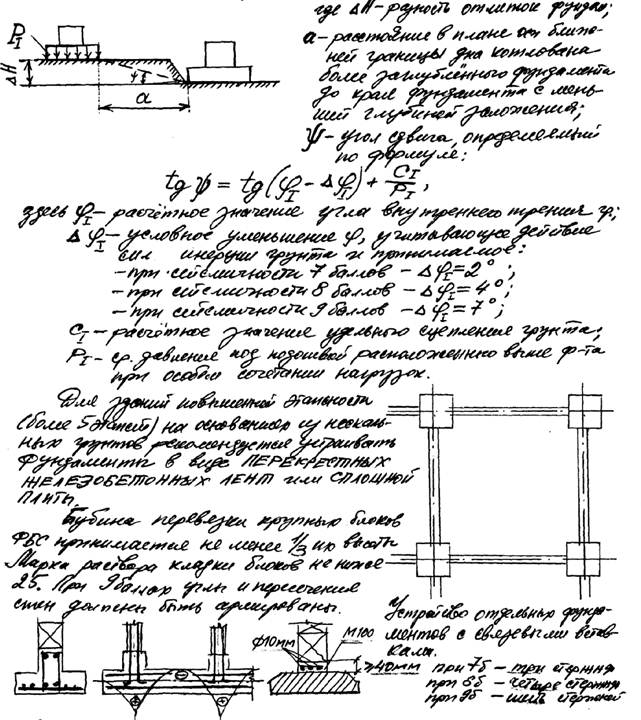 где ΔH – разность отметок фундам;
a – расстояние в плане от ближ-
ней границы дна котлована
более заглубленного фундамента
до края фундамента с мень-
шей глубиной заложения;
ψ – угол сдвига, определяемый
по формуле:
P_I
ΔH
ψ
a
tg ψ = tg(φ_I – Δφ_I) + C_I/P_I,
здесь φ_I – расчётное значение угла внутреннего трения φ;
Δφ_I – условное уменьшение φ, учитывающее действие
сил инерции грунта и принимаемое:
– при сейсмичности 7 баллов – Δφ_I = 2°;
– при сейсмичности 8 баллов – Δφ_I = 4°;
– при сейсмичности 9 баллов – Δφ_I = 7°;
C_I – расчётное значение удельного сцепления грунта;
P_I – ср. давление под подошвой расположенного выше ф-та
при особом сочетании нагрузок.
Для зданий повышенной этажности
(более 5 этажей) на основаниях из нескаль-
ных грунтов рекомендуется устраивать
фундаменты в виде ПЕРЕКРЕСТНЫХ
ЖЕЛЕЗОБЕТОННЫХ ЛЕНТ или СПЛОШНОЙ
ПЛИТЫ.
Глубина перевязки крупных блоков
ФБС принимается не менее 1/3 их высоты
Марка раствора кладки блоков не ниже
25. При 9 баллах углы и пересечения
стен должны быть армированы.
Устройство отдельных фунда-
ментов с связевыми встав-
ками.
при 7б – три стержня
при 8б – четыре стержня
при 9б – шесть стержней
Ф10мм
М100
≥40мм